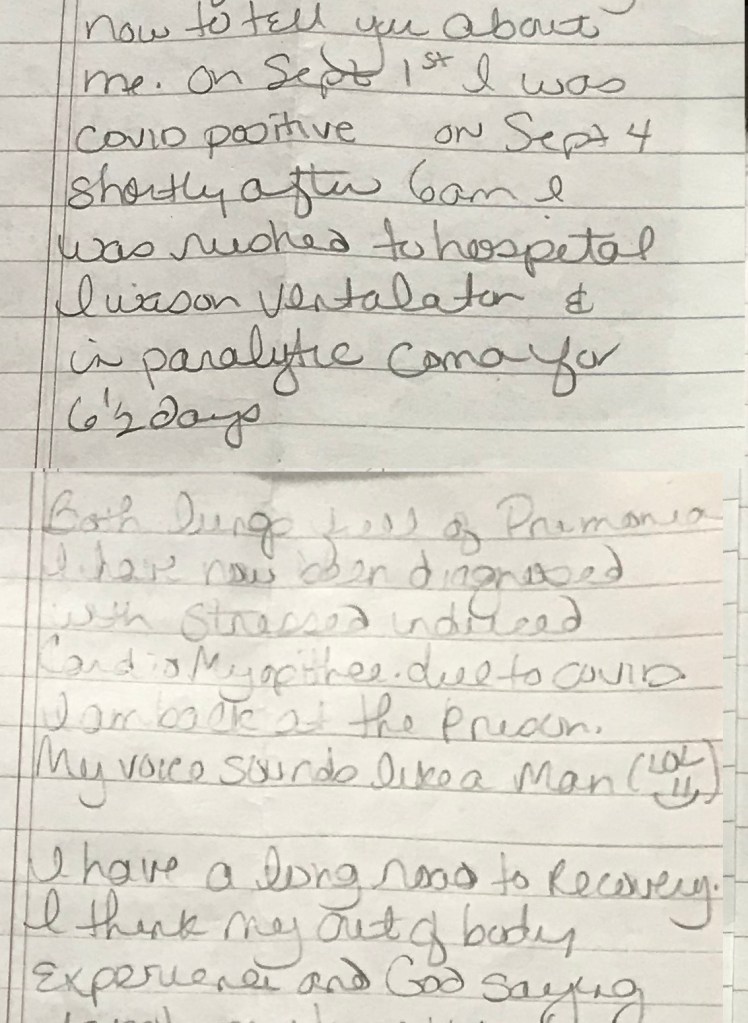 now to tell you about
me. on Sept 1st I was
covid positive on Sept 4
shortly after 6am I
was rushed to hospetal
I was on ventalator &
in paralytic coma for
6 1/2 days
Both lungs full of Pnemonia
I have now been diagnosed
with Stressed indused
Cardio Myopithee. due to covid
I am back at the Prison.
My voice sounds like a Man (LOL
I have a long road to Recovery.
I think my out of body
Experience and God saying